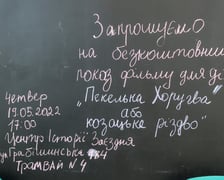 Запрошуємо
на безкоштовний
показ фільму для ді
"Пекельна Хоругва"
або
козацьке різдво"
четвер
19.05.2022
17:00
Центр Історії Заєздня
ул Грабішинська 184
Трамвай №4